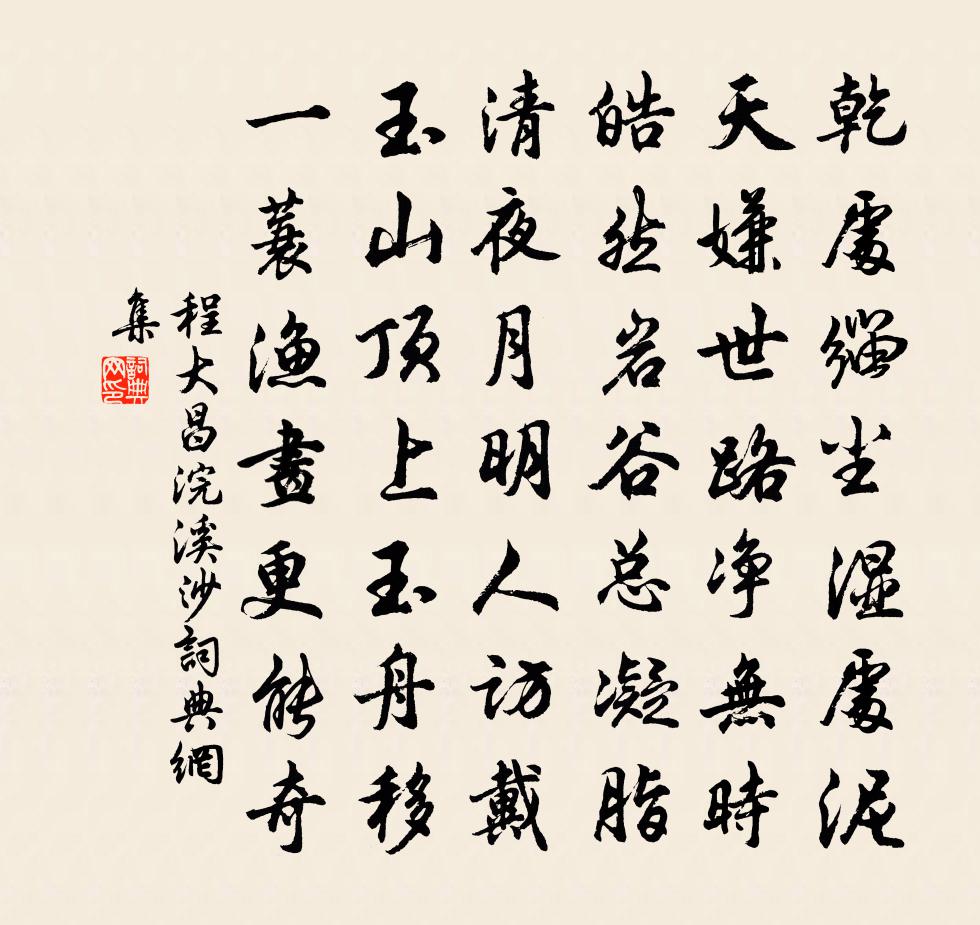 乾處緇尘湿處泥
天嫌世路净無時
皓然岩谷总凝脂
清夜月明人訪戴
玉山頂上玉舟移
一蓑漁畫更能奇
程大昌浣溪沙詞典網
集
詞典
网印